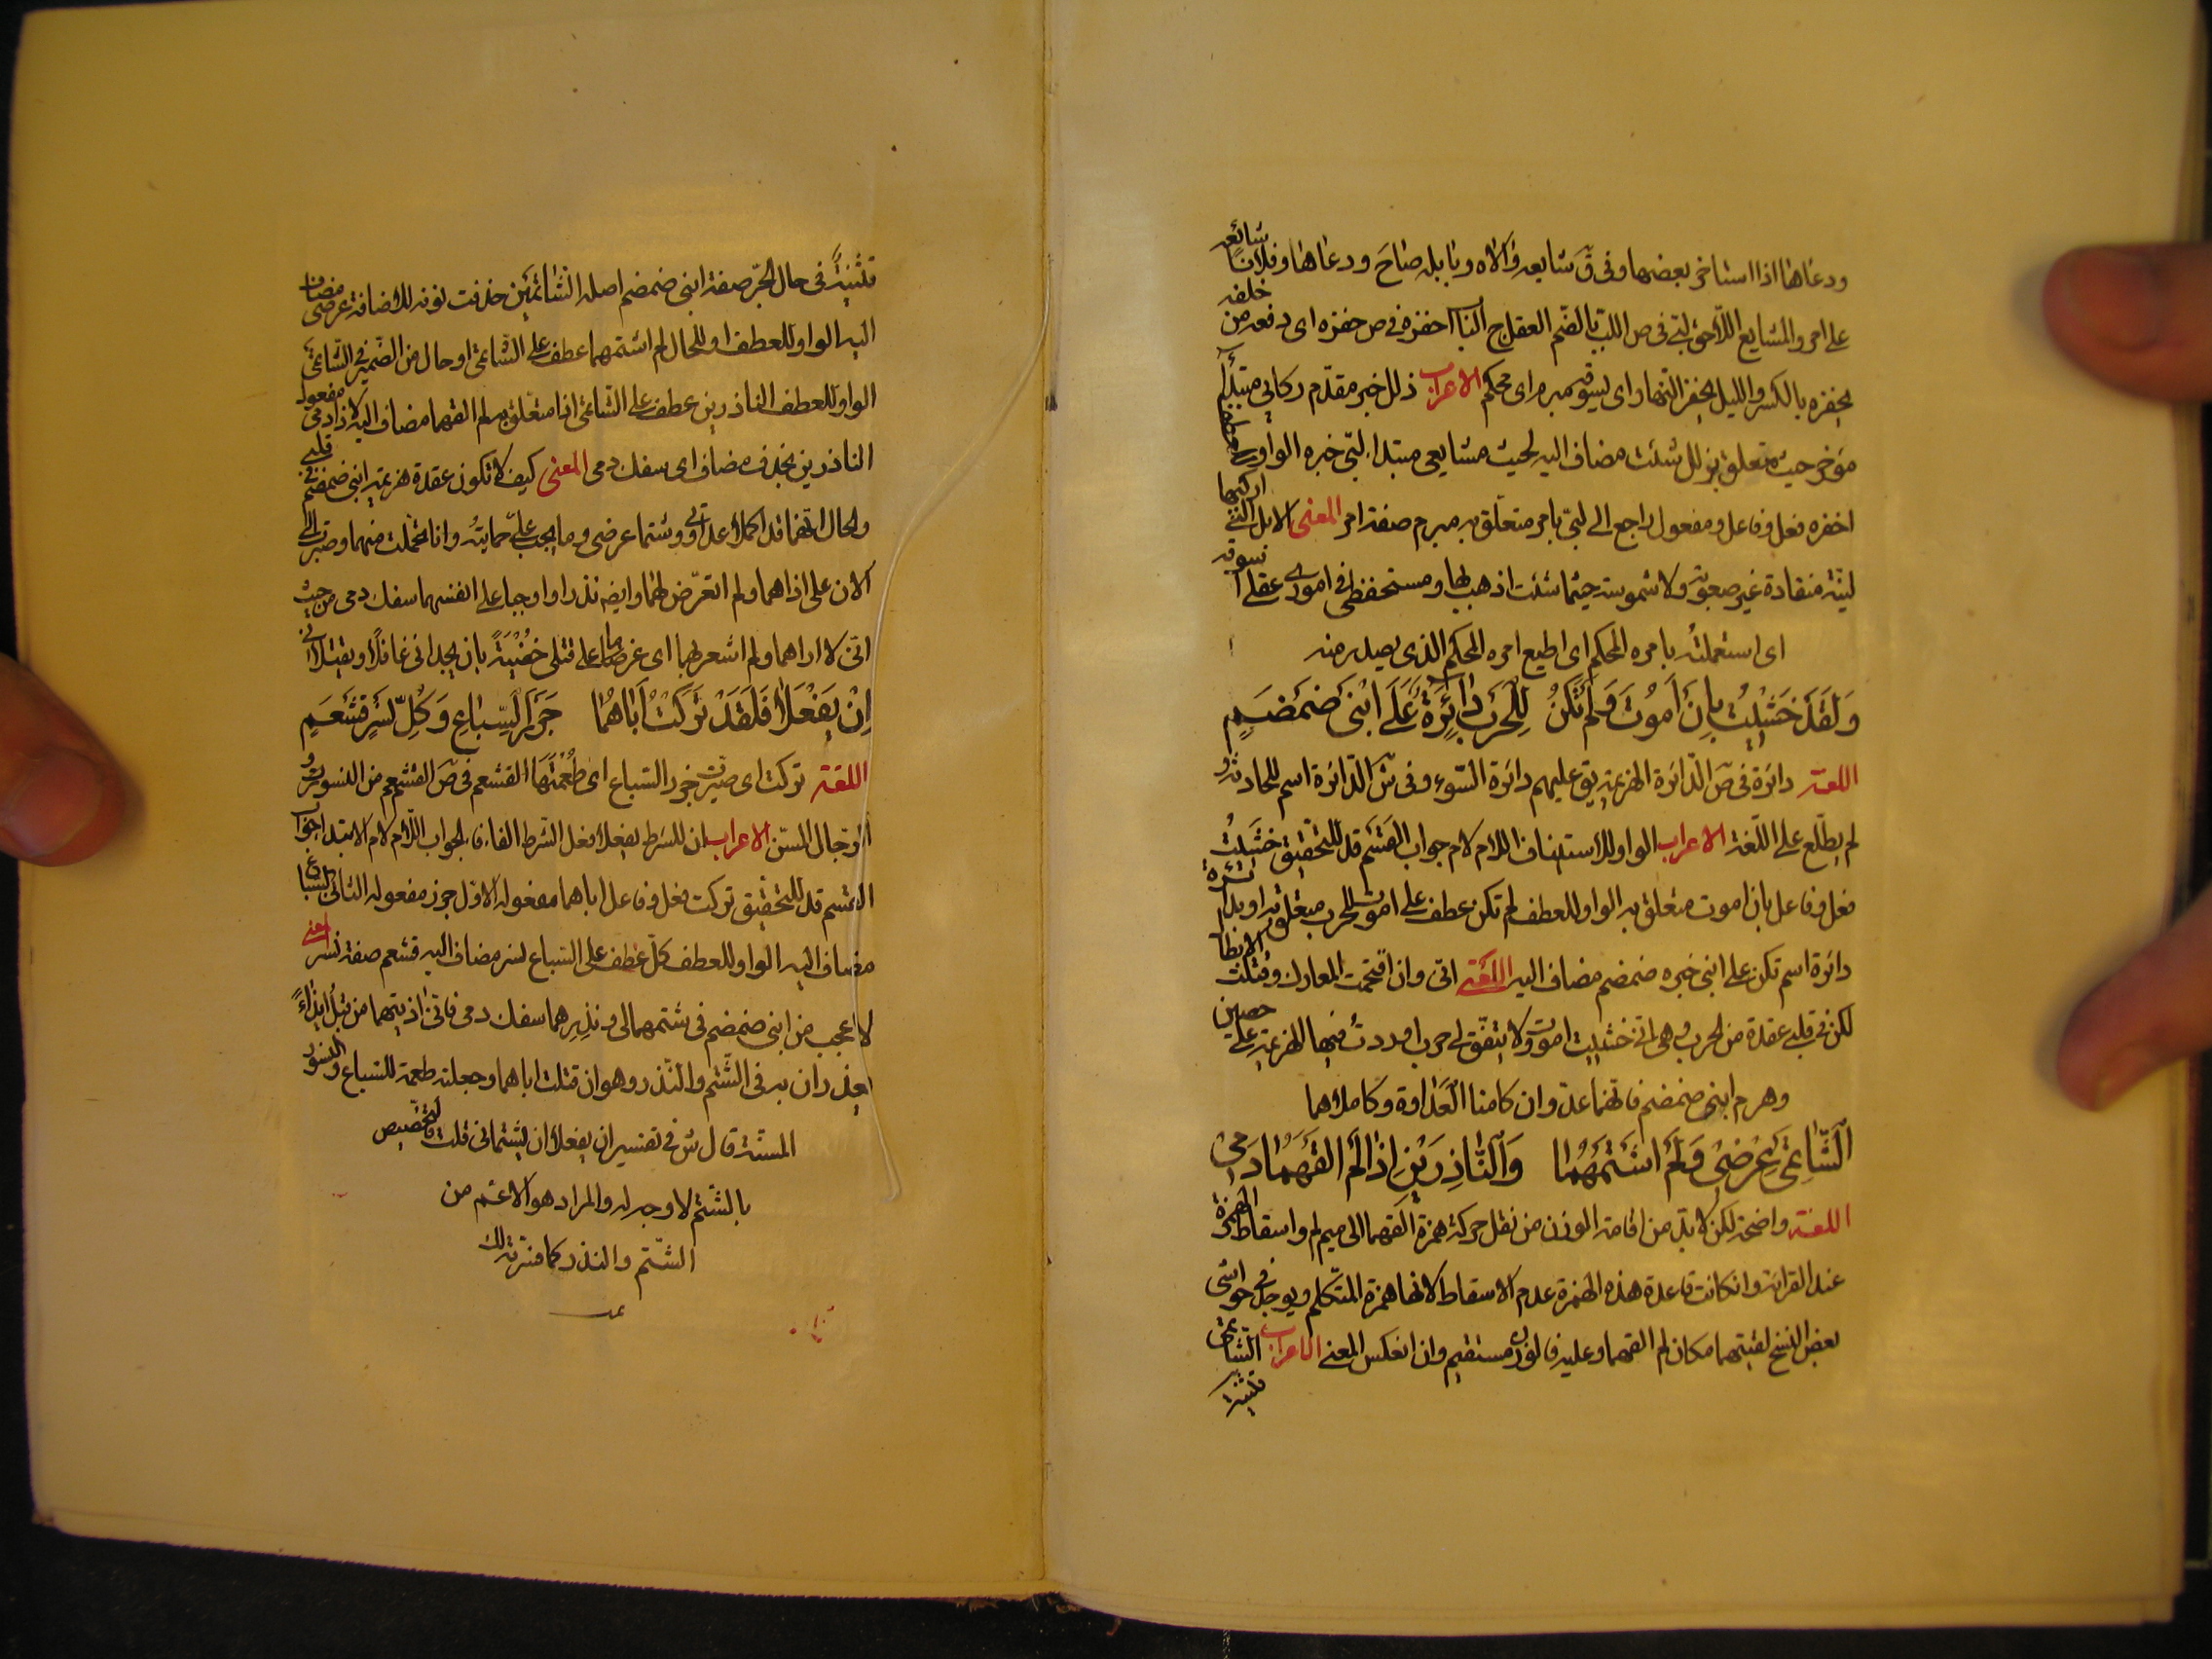 ودعاها اذا استاخر بعضها وفى ق شايعه والاه وبابله صاح ودعاها وفلانا شايعه
على امر والمشايع اللاحق لبّى فى ص اللبّ بالضم العقل ج الباب احفزه فى ص حفزه اى دفعه من خلفه
يحفزه بالكسر والليل يحفز النهار اى يسوقه مبرم اى محكم الاعراب ذلل خبر مقدّم ركابى مبتدأ
مؤخر حيث متعلق بذلل شئت مضاف اليه لحيث مشايعى مبتدا لبّى خبره الواو
احفزه فعل وفاعل ومفعول راجع الى لبّى بامر متعلّق به مبرم صفة امر المعنى الابل التى اركبها
ليّنة منقادة غير صعبة ولا شموسة حيثما شئت اذهب بها ومستحفظى فى امورى عقلى نسوقه
اى استعملته بامره المحكم اى اطيع امره المحكم الذى يصدر منه
وَلَقَدْ خَشِيتُ بِاَنْ اَمُوتَ وَلَمْ تَكُنْ لِلْحَرْبِ دَائِرَةٌ عَلَى ابْنَىْ ضَمْضَمِ
اللغة دائرة فى ص الدّائرة الهزيمة يق عليهم دائرة السّوء وفى ش الدّائرة اسم للحادثة و
لم يطّلع على اللّغة الاعراب الواو للاستيناف اللام لام جواب القسم قد للتحقيق خشيت
فعل وفاعل بان اموت متعلق به الواو للعطف لم تكن عطف على اموت للحرب متعلّق بدائرة
دائرة اسم تكن على ابنى خبره ضمضم مضاف اليه اللغة انى وان اقتحمت المعارك وقتلت الابطال
لكن فى قلبى عقدة من الحرب وهى انى خشيت اموت ولا يتفق لى حرب اوردت فيها الهزيمة على حصين
وهرم ابنى ضمضم فانهما عدوّان كامنا العداوة وكاملاهما
اَلشَّاتِمَىْ عِرْضِىْ وَلَمْ اَشْتِمْهُمَا وَالنَّاذِرَيْنِ اِذَا لَمْ اَلْقَهُمَا دَمِىْ
اللغة واضحة لكن لا بدّ من اقامة الوزن من نقل حركة همزة القهما الى ميم لم واسقاط الهمزة
عند القرائة وانكانت قاعدة هذه الهمزة عدم الاسقاط لانها همزة المتكلم ويوجد فى حواشى
بعض النسخ لقيتهما مكان لم القهما وعليه فالوزن مستقيم وان انعكس المعنى الاعراب الشاتمى
تثنية
تثنية فى حال الجرّ صفة ابنى ضمضم اصله الشاتمين حذفت نونه للاضافة عرضى مضاف
اليه الواو للعطف او للحال لم اشتمهما عطف على الشاتمى او حال من الضمير فى الشّاتمى
الواو للعطف الناذرين عطف على الشاتمى اذا متعلّق به لم القهما مضاف اليه لاذا دمى مفعول
الناذرين بحذف مضاف اى سفك دمى المعنى كيف لا تكون عقدة هزيمة ابنى ضمضم فى قلبى
والحال انهما قد اكملا عداوتى وشتما عرضى وما يجب علىّ حمايته وانا تحملت منهما وصبرت الى
الان على اذاهما ولم اتعرّض لهما وايضه نذرا واوجبا على انفسهما سفك دمى من حيث
انى لا اراهما ولم اشعر بهما اى غرضهما على قتلى خفية بان يجدانى غافلا ويقتلانى
اِنْ يَفْعَلَا فَلَقَدْ تَرَكْتُ اَبَاهُمَا جَزَرَ السِّبَاعِ وَكُلِّ نَسْرٍ قَشْعَمِ
اللغة تركت اى صيّرت جزر السّباع اى طُعْمَتَهَا القشعم فى ص القشعم من النسور و
الرّجال المسنّ الاعراب ان للشرط يفعلا فعل الشرط الفاء فا الجواب اللّام لام الابتدا جواب
القسم قد للتحقيق تركت فعل وفاعل اباهما مفعوله الاوّل جزر مفعوله الثانى السّباع
مضاف اليه الواو للعطف كلّ عطف على السّباع نسر مضاف اليه قشعم صفة نسر المعنى
لا عجب من ابنى ضمضم فى شتمهما لى ونذرهما سفك دمى فانى اذيتهما من قبل ايذاءً
يعذران به فى الشّتم والنّذر وهو ان قتلت اباهما وجعلته طعمة للسّباع والنسور
المسنّة قال ش فى تفسير ان يفعلا ان يشتمانى قلت فالتخصيص
بالشّتم لا وجه له والمراد هو الاعمّ من
الشّتم والنذر كما فسّرته لك